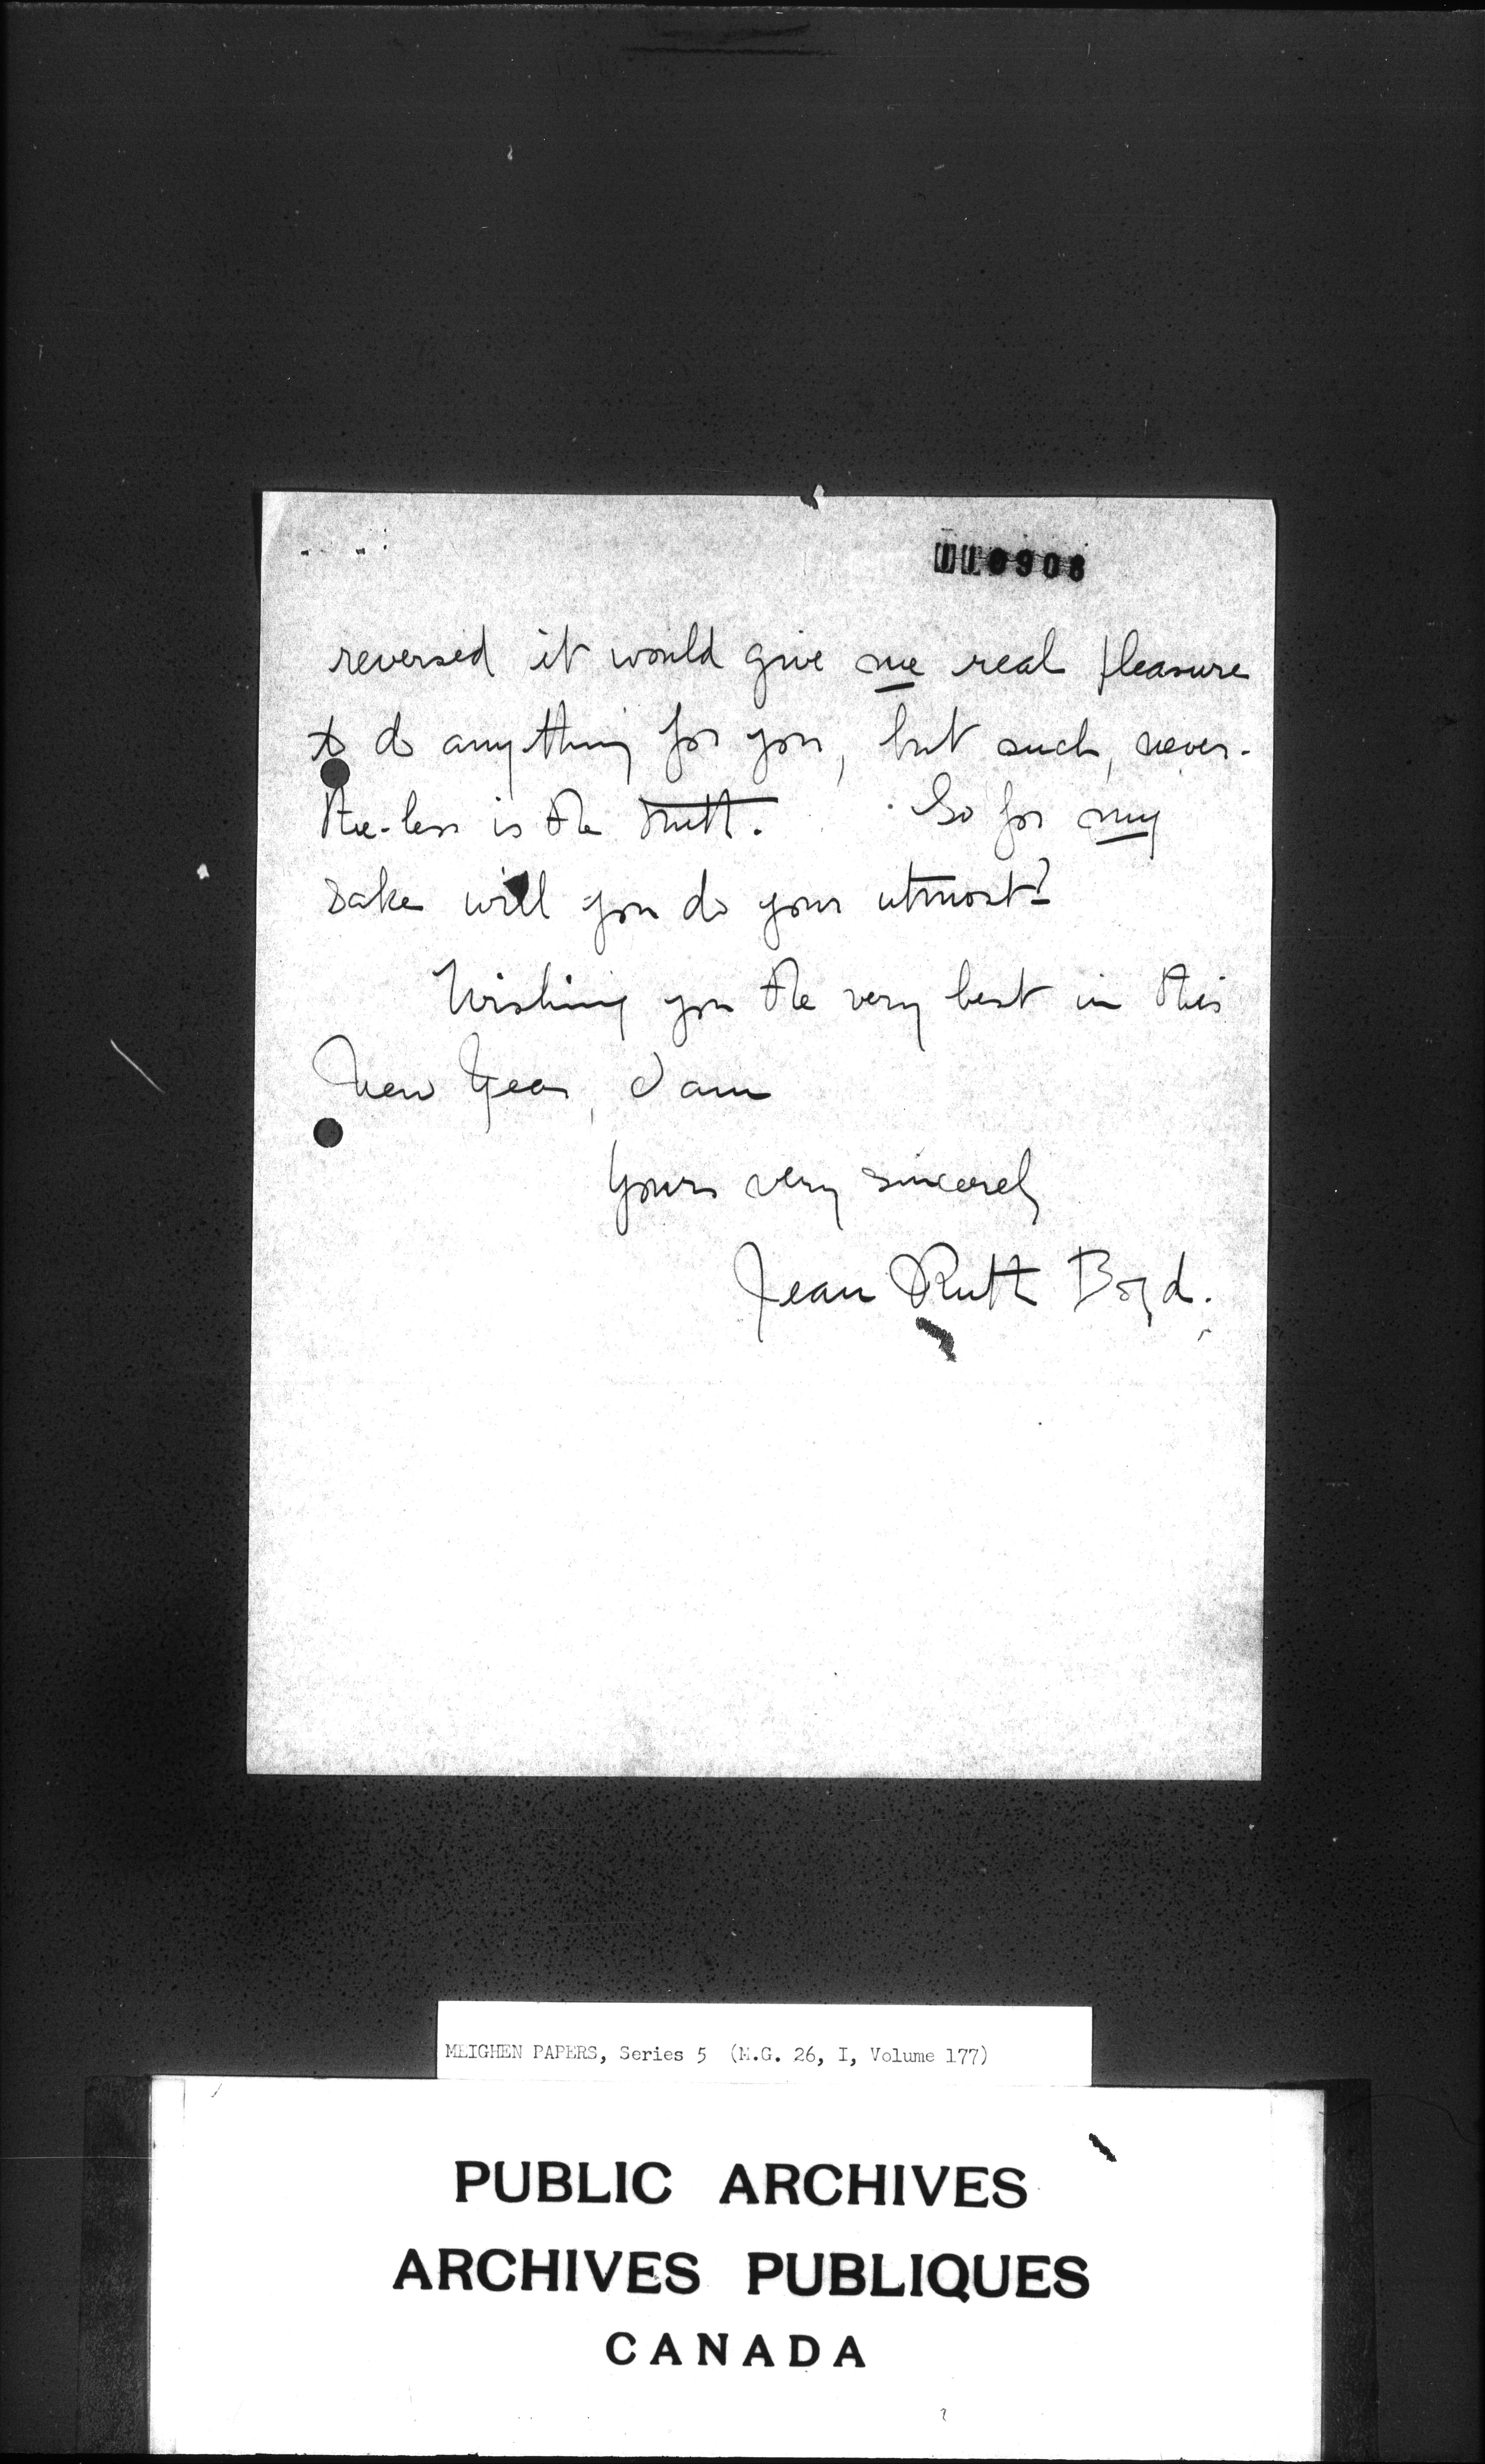 reversed it would give me real pleasure
to do anything for you, but such, never-
the-less is the truth. So for my
sake will you do your utmost?
Wishing you the very best in this
New Year, I am
Yours very sincerely
Jean Ruth Boyd.
MEIGHEN PAPERS, Series 5 (M.G. 26, I, Volume 177)
PUBLIC ARCHIVES
ARCHIVES PUBLIQUES
CANADA